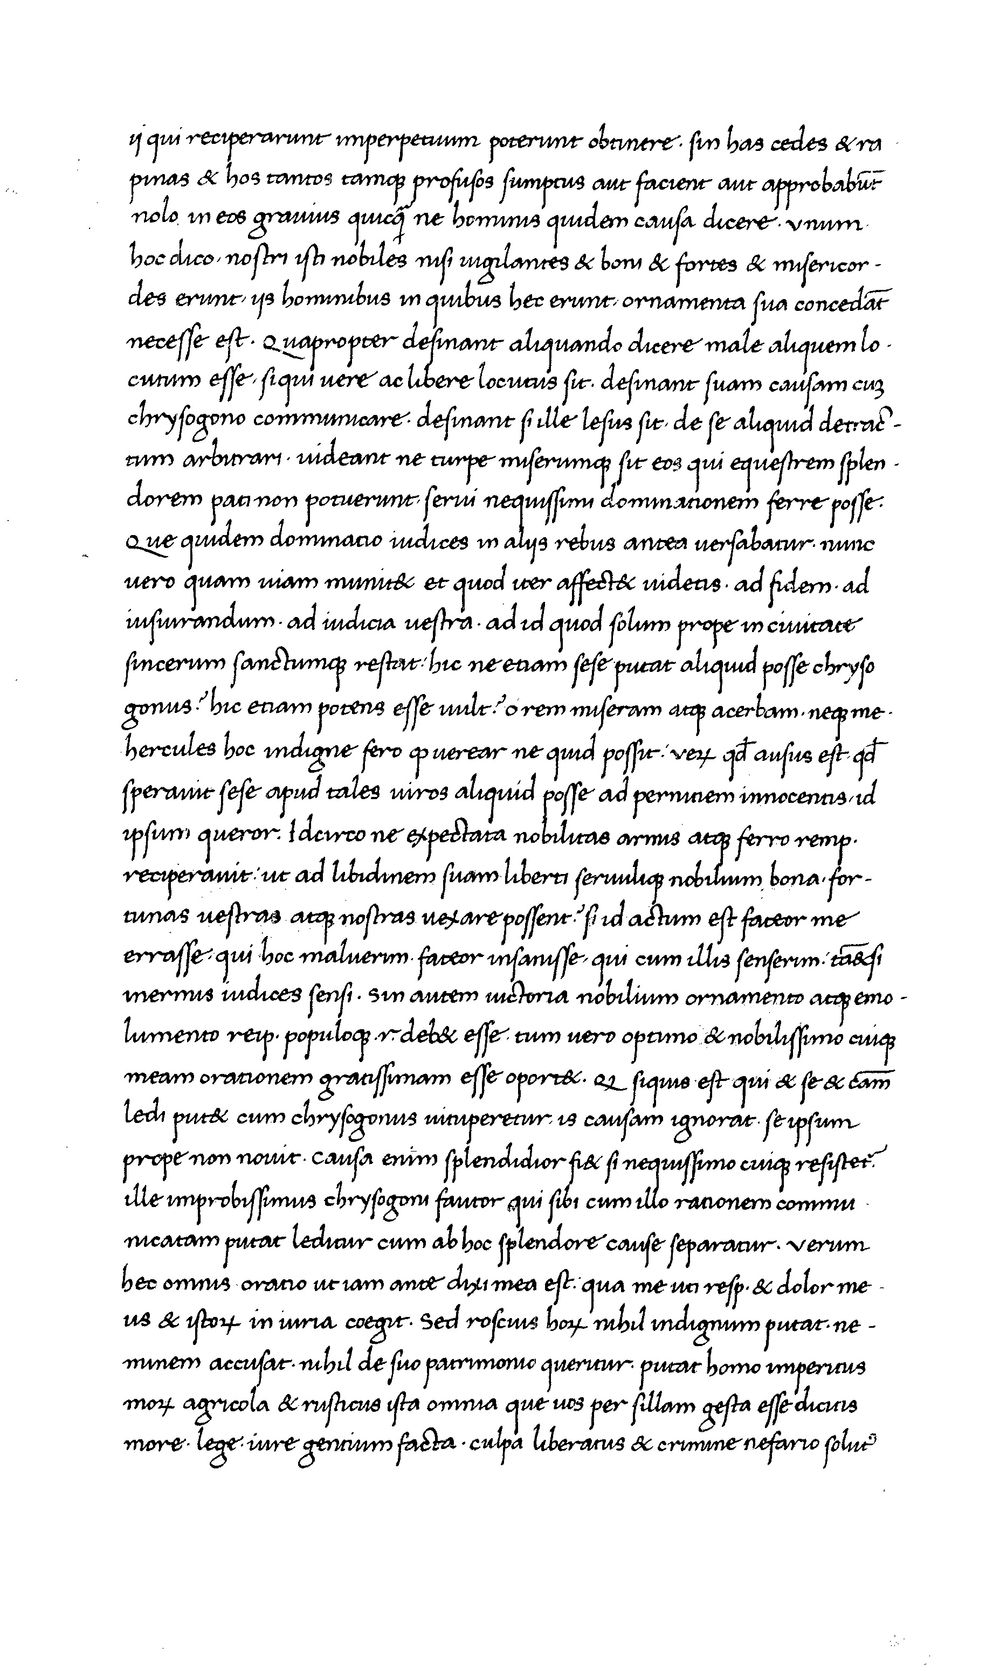 ii qui reciperarunt imperpetuum poterunt obtinere · sin has cedes & ra
pinas & hos tantos tamqꝫ profusos sumptus aut facient aut approbabūt
nolo in eos grauius quicq̄ ne hominis quidem causa dicere · vnum
hoc dico · nostri isti nobiles nisi uigilantes & boni & fortes & misericor-
des erunt · iis hominibus in quibus hec erunt · ornamenta sua concedāt
necesse est · Quapropter desinant aliquando dicere male aliquem lo-
cutum esse · siqui uere ac libere locutus sit · desinant suam causam cuꝫ
chrysogono communicare · desinant si ille lesus sit · de se aliquid detrac-
tum arbitrari · uideant ne turpe miserumqꝫ sit eos qui equestrem splen-
dorem pati non potuerunt · serui nequissimi dominationem ferre posse ·
Que quidem dominatio iudices in aliis rebus antea uersabatur · nunc
uero quam uiam munit& et quod iter affect& uidetis · ad fidem · ad
iusiurandum · ad iudicia uestra · ad id quod solum prope in ciuitate
sincerum sanctumqꝫ restat · hic ne etiam sese putat aliquid posse chryso
gonus? hic etiam potens esse uult? o rem miseram atqꝫ acerbam · neqꝫ me-
hercules hoc indigne fero ꝙ uerear ne quid possit · veꝝ qđ ausus est · qđ
sperauit sese apud tales uiros aliquid posse ad pernitiem innocentis · id
ipsum queror. Idcirco ne expectata nobilitas armis atqꝫ ferro remp.
reciperauit · ut ad libidinem suam liberti seruuliqꝫ nobilium bona · for-
tunas uestras atqꝫ nostras uexare possent? si id actum est fateor me
errasse · qui hoc maluerim · fateor insanisse · qui cum illis senserim · tā&si
inermis iudices sensi · Sin autem uictoria nobilium ornamento atqꝫ emo-
lumento reip. populoqꝫ .r. deb& esse · tum uero optimo & nobilissimo cuiqꝫ
meam orationem gratissimam esse oport& · Ꝙ siquis est qui & se & cām
ledi put& cum chrysogonus uituperetur · is causam ignorat · se ipsum
prope non nouit · Causa enim splendidior fi& si nequissimo cuiqꝫ resistet̄.
ille improbissimus chrysogoni fautor qui sibi cum illo rationem commu
nicatam putat leditur cum ab hoc splendore cause separatur · Verum
hec omnis oratio ut iam ante dixi mea est · qua me uti resp. & dolor me-
us & istoꝝ in iuria coegit · Sed roscius hoꝝ nihil indignum putat · ne-
minem accusat · nihil de suo patrimonio queritur · putat homo imperitus
moꝝ agricola & rusticus ista omnia que uos per sillam gesta esse dicitis
more · lege · iure gentium facta · culpa liberatus & crimine nefario solutꝰ